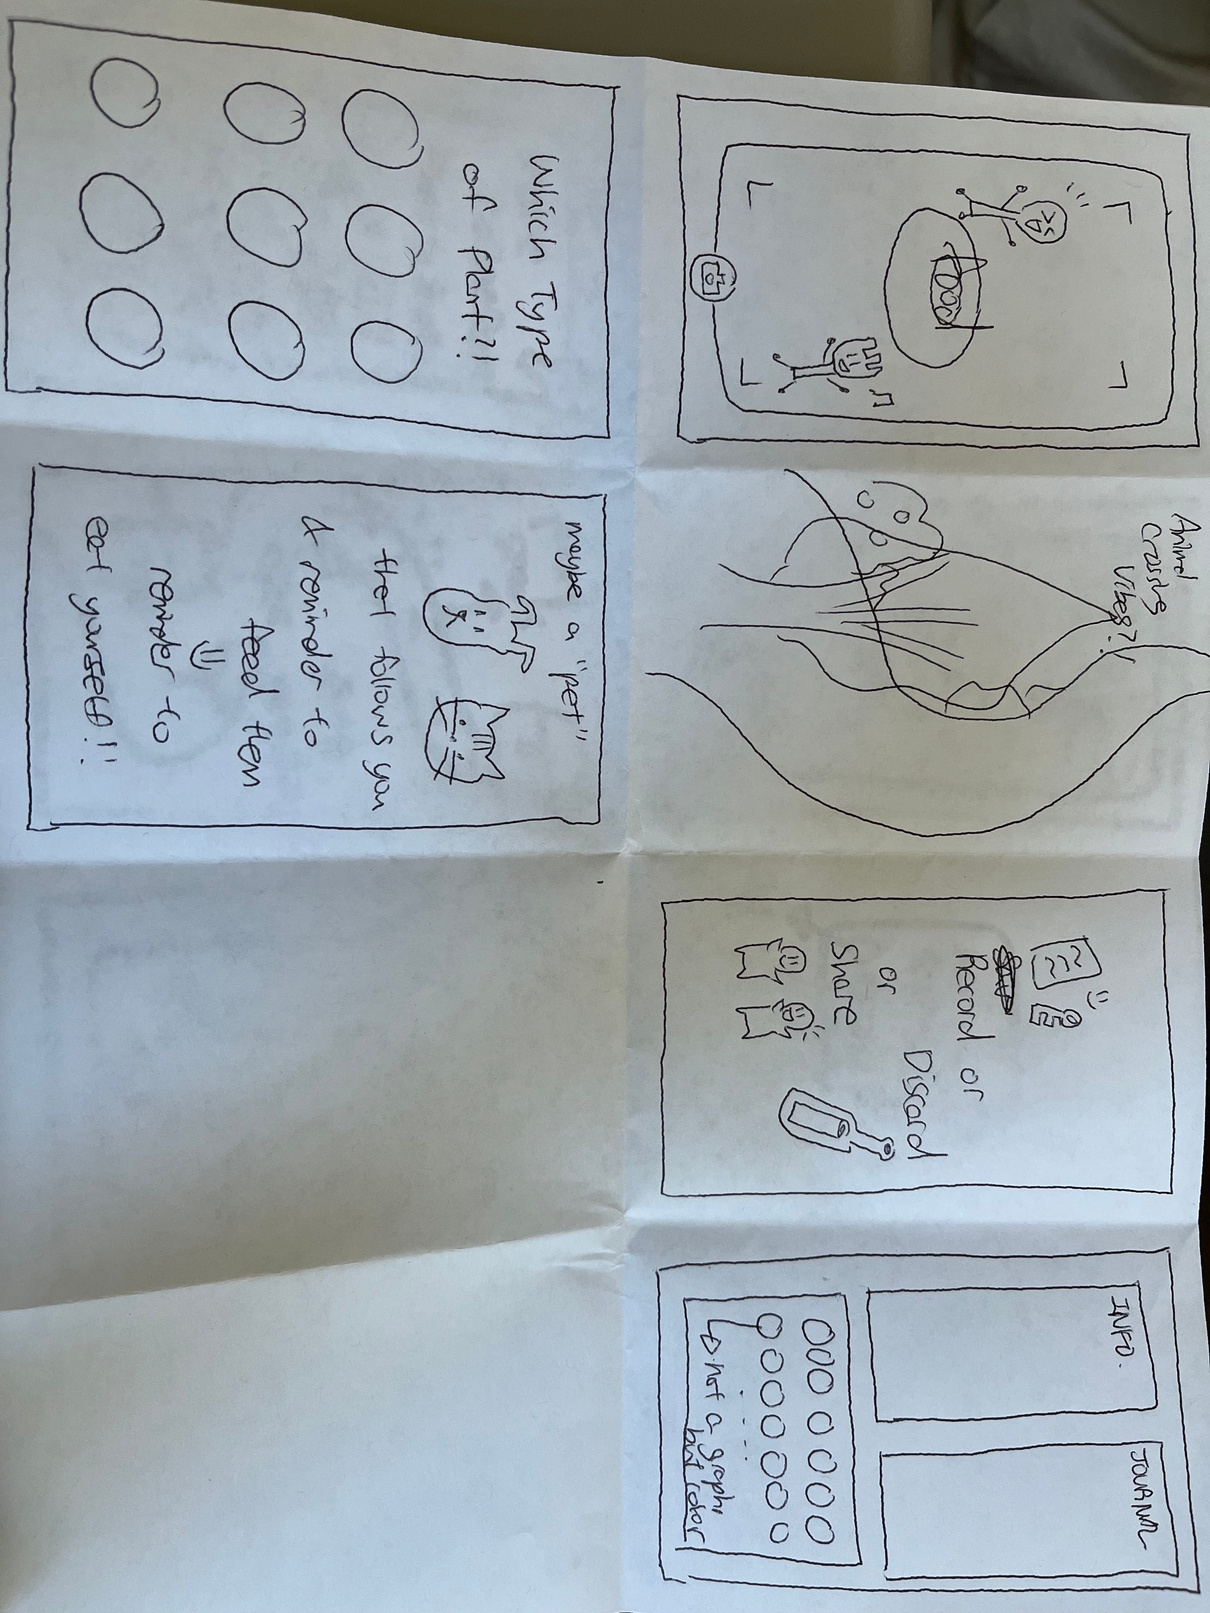 Food
Animal
Crossing
Vibes?!
Record or
or
Discard
Share
INFO.
JOURNAL
not a graph
but color
Which Type
of Plant?!
maybe a "pet"
that follows you
A reminder to
feed them
reminder to
eat yourself!!